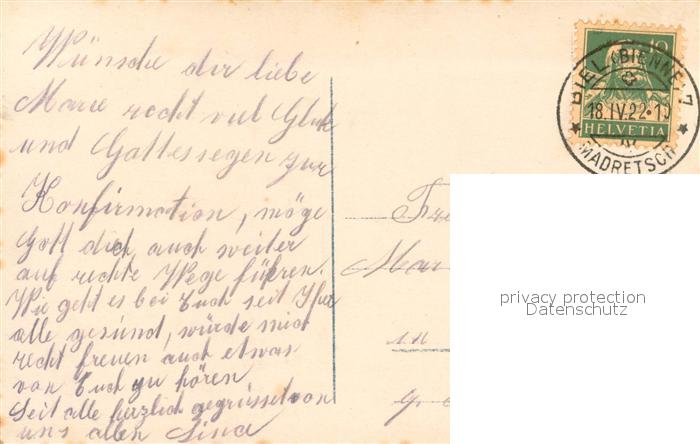 Wünsche dir liebe
Marie recht viel Glük
und Gottessegen zur
Konfirmation, möge
Gott dich auch weiter
auf rechte Wege führen.
Wie geht es bei Euch seit Ihr
alle gesund, würde mich
recht freuen auch etwas
von Euch zu hören
Seit alle herzlich gegrüsset von
uns allen Lina
10
BIEL (BIENNE) 7
18.IV.22
HELVETIA
MADRETSCH
in
privacy protection
Datenschutz